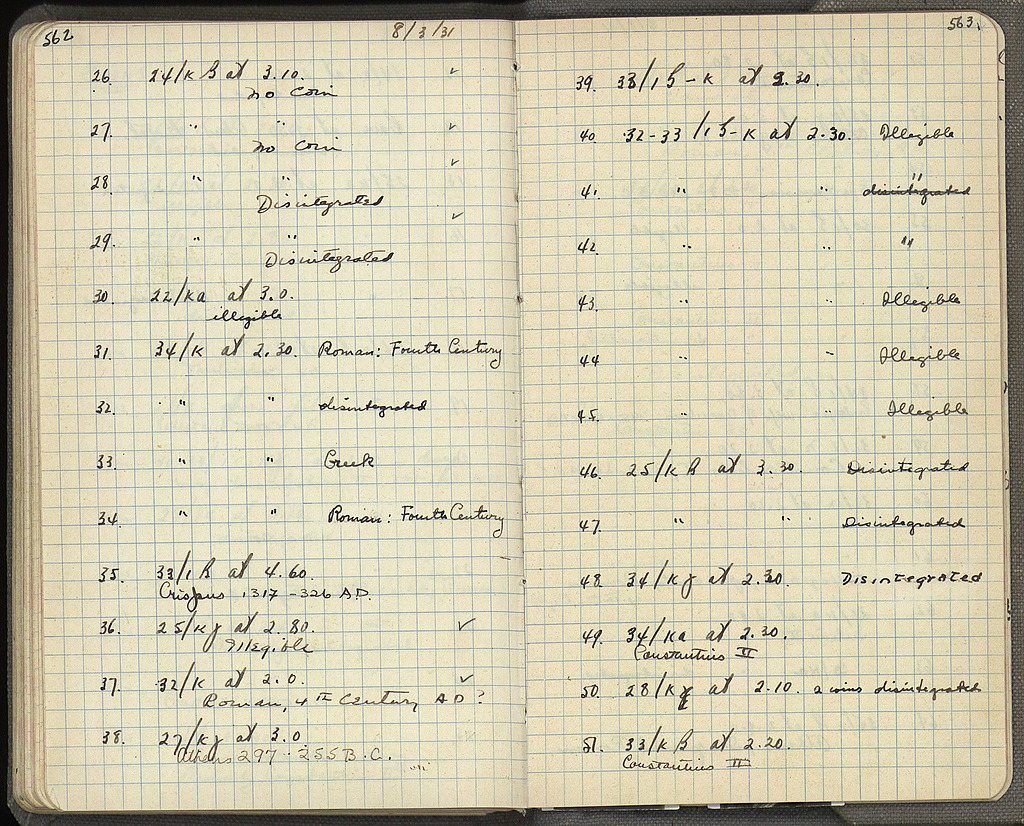 562
8/3/31
26. 24/K B at 3.10. ✓
No Coin
27. " " ✓
No Coin
✓
28. " "
Disintegrated
✓
29. " "
Disintegrated
30. 22/Ka at 3.0.
illegible
31. 34/K at 2.30. Roman: Fourth Century
32. " " disintegrated
33. " " Greek
34. " " Roman: Fourth Century
35. 33/1 B at 4.60.
Crispus 317-326 A.D.
36. 25/Kγ at 2.80. ✓
Illegible
37. 32/K at 2.0. ✓
Roman, 4TH Century AD?
38. 27/Kγ at 3.0
Athens 297-255 B.C.
563.
39. 33/15-K at 2.30.
40. 32-33/15-K at 2.30. Illegible
41. " " disintegrated "
42. " " "
43. " " Illegible
44 " " Illegible
45. " " Illegible
46. 25/K B at 3.30. Disintegrated
47. " " Disintegrated
48. 34/Kγ at 2.30. Disintegrated
49. 34/Ka at 2.30.
Constantius II
50. 28/Kγ at 2.10. 2 coins disintegrated
51. 33/K B at 2.20.
Constantius II